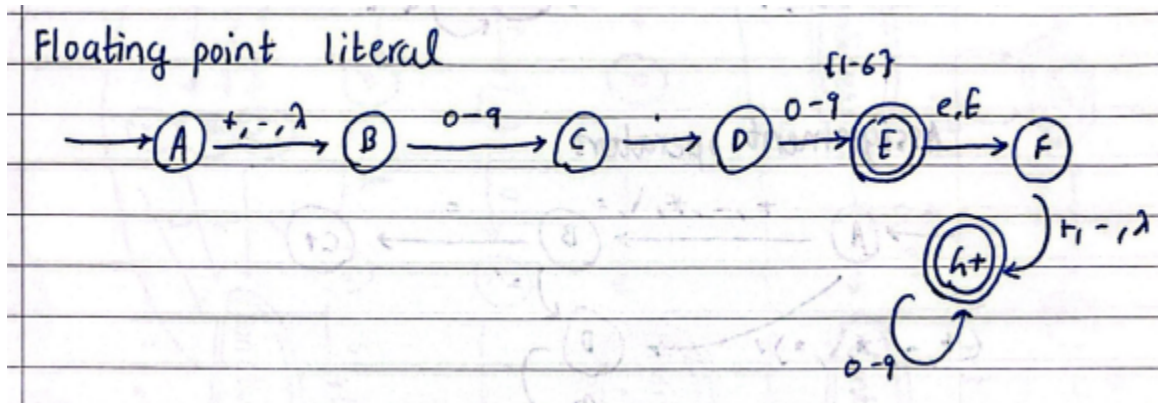 Floating point literal
{1-6}
A +, -, λ B 0-9 C . D 0-9 E e, E F
+, -, λ
G+
0-9